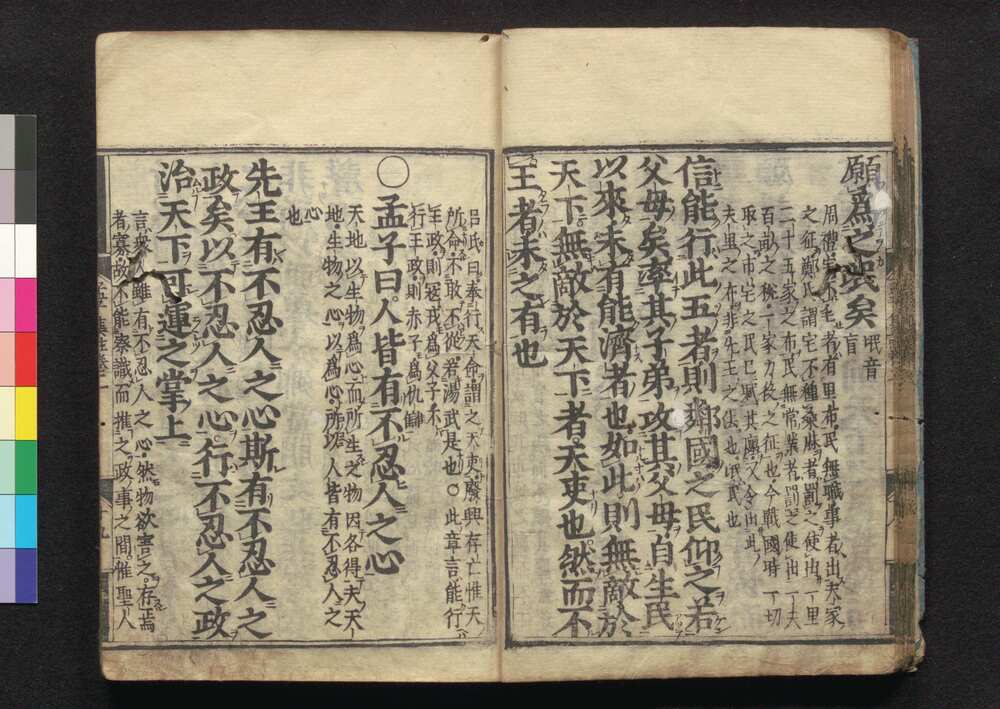 願爲之氓矣
氓音
盲
周禮宅不毛者有里布民無職事者出夫家
之征鄭氏謂宅不種桑麻者罰之使出一里
二十五家之布民無常業者罰之使出一夫
百畝之稅一家力役之征也今戰國時一切
取之市宅之民已賦其廛又令出此
夫里之布非先王之法也氓民也
信能行此五者則鄰國之民仰之若
父母矣率其子弟攻其父母自生民
以來未有能濟者也如此則無敵於
天下無敵於天下者天吏也然而不
王者未之有也
呂氏曰奉行天命謂之天吏廢興存亡惟天
所命不敢不從若湯武是也○此章言能行
王政則冦戎爲父子不
行王政則赤子爲仇讎
○孟子曰人皆有不忍人之心
天地以生物爲心而所生之物因各得夫天
地生物之心以爲心所以人皆有不忍人之
心
也
先王有不忍人之心斯有不忍人之
政矣以不忍人之心行不忍人之政
治天下可運之掌上
言衆人雖有不忍人之心然物欲害之存焉
者寡故不能察識而推之政事之間惟聖人